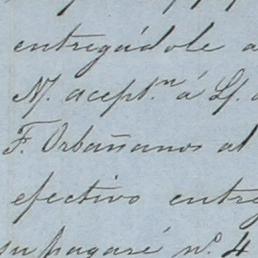 entregádole a
N/. acept.ⁿ á L/.
F. Orbañanos al
efectivo entre
su pagaré nº. 4